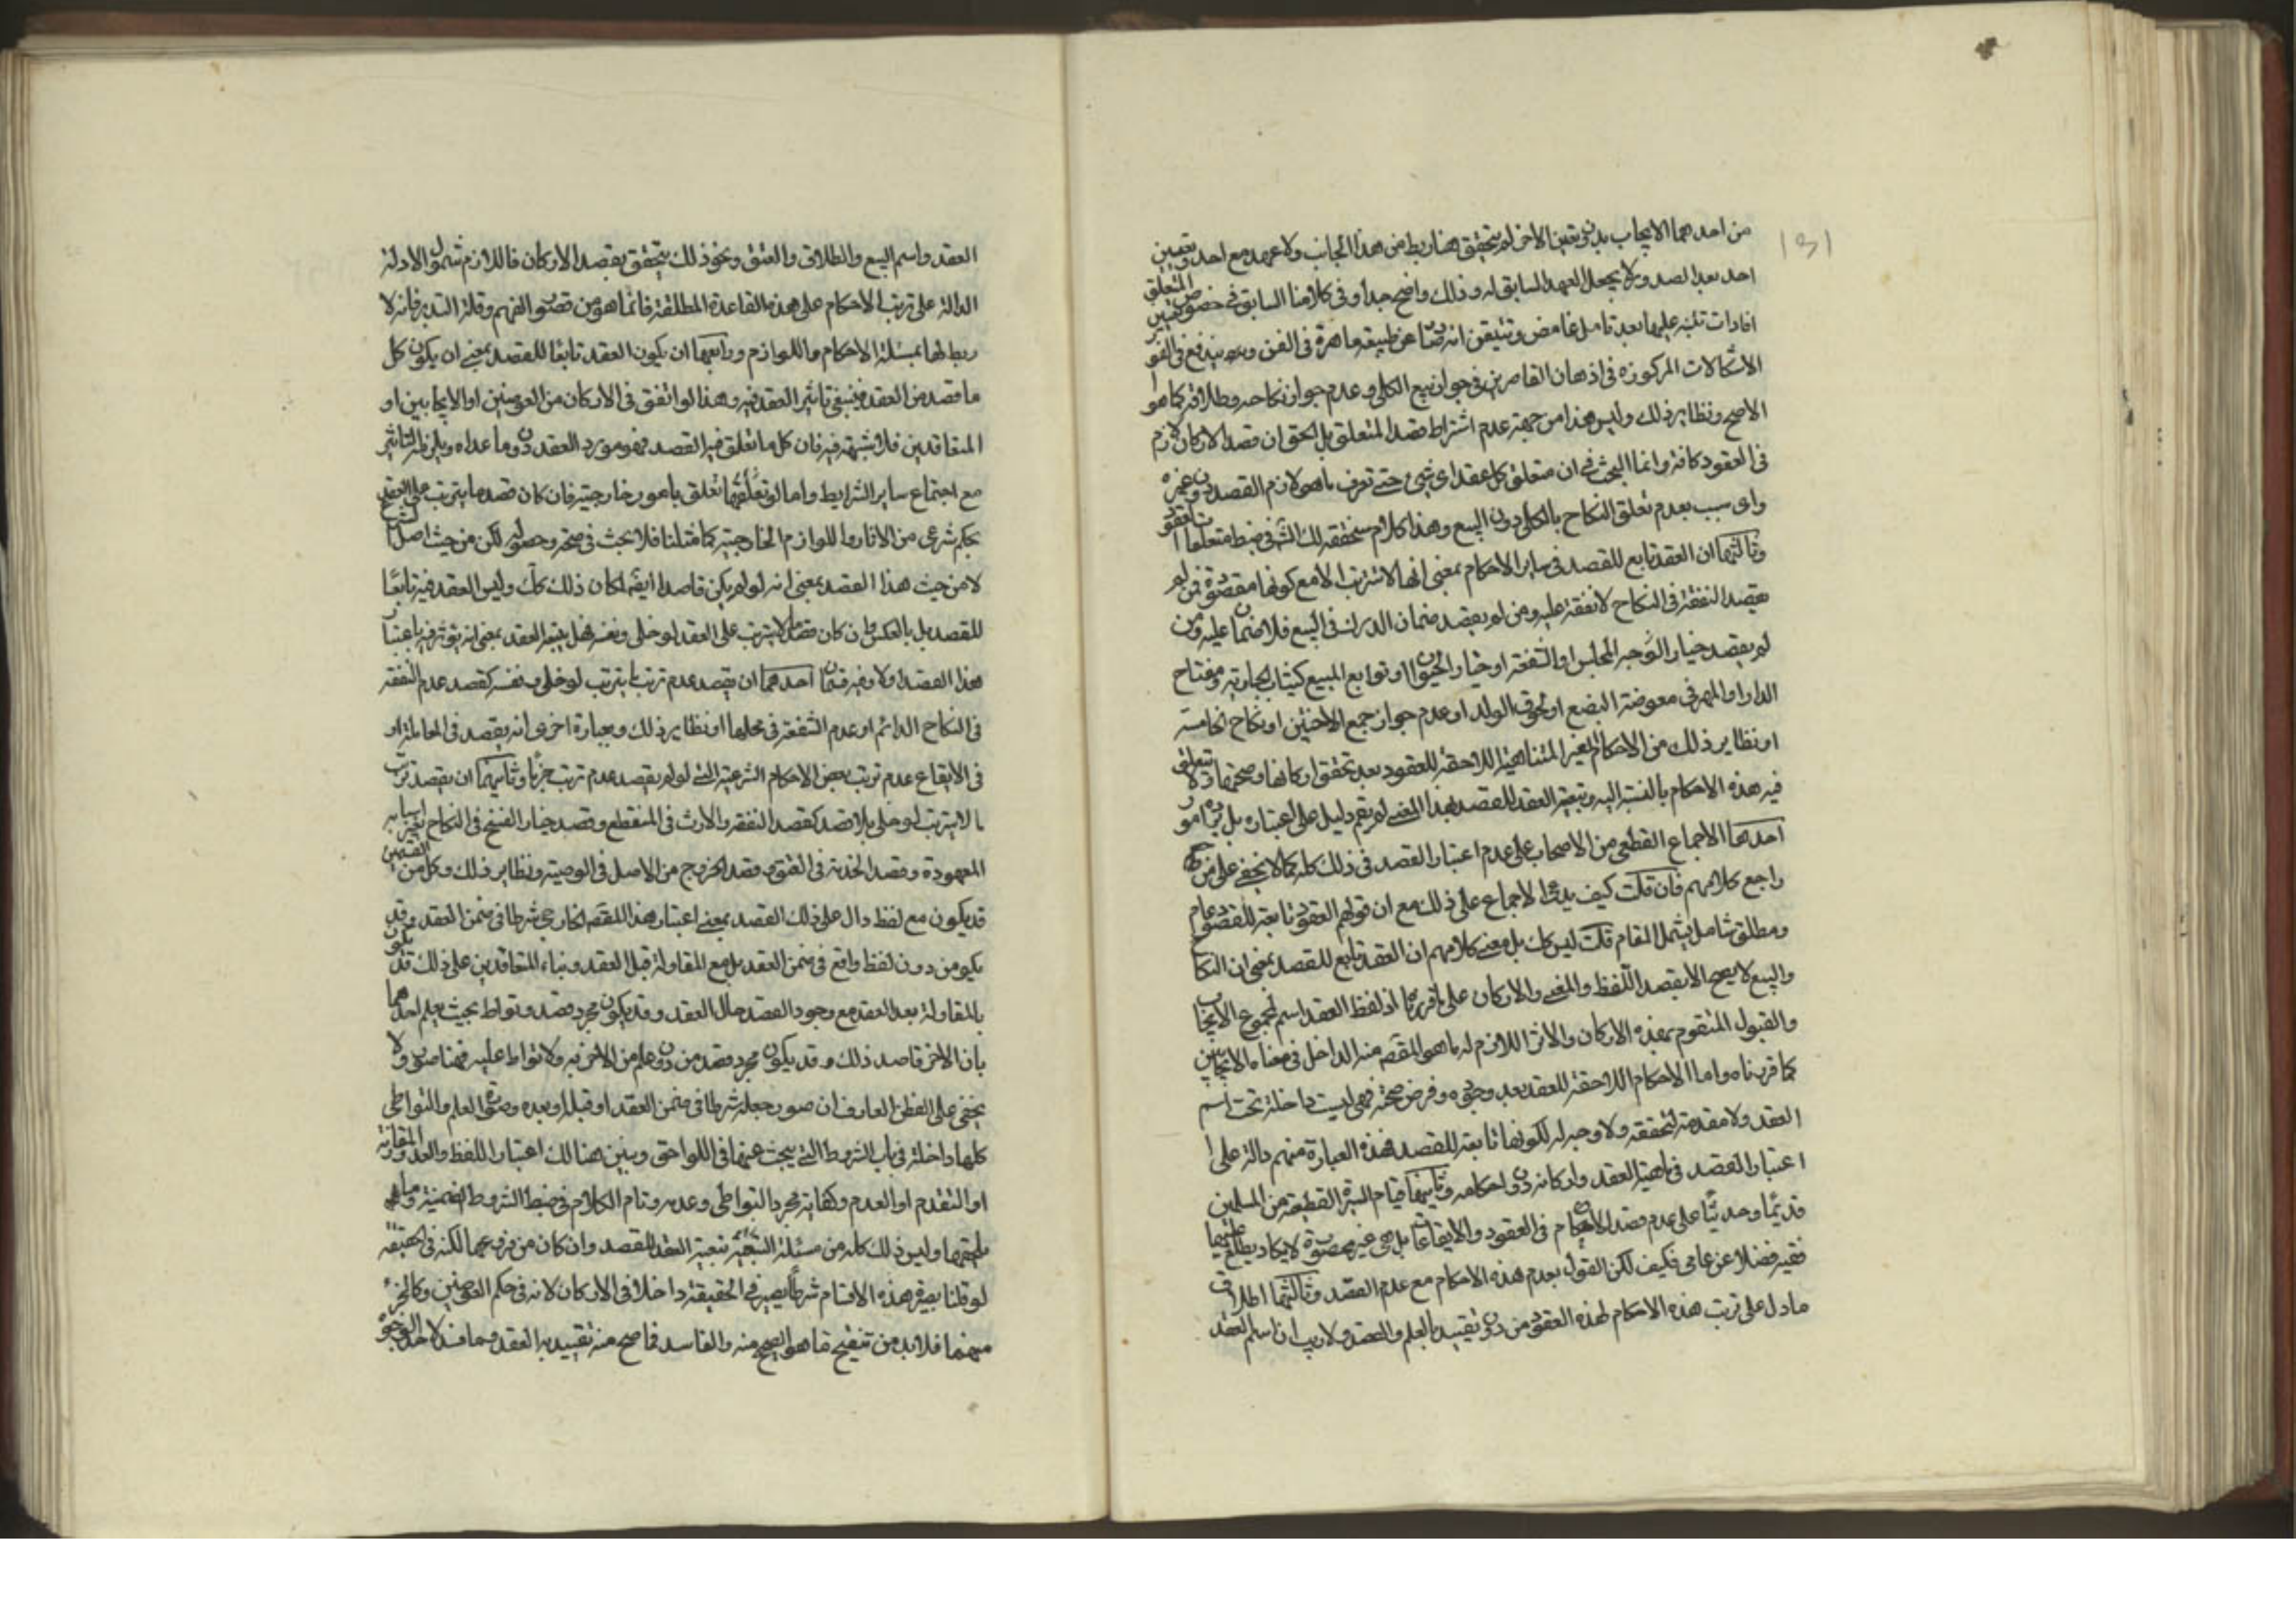 ١٣١
من احدهما الايجاب بدون تعين الاخر لم يتحقق هنا ربط من هذا الجانب ولا عهد مع احد وتعيين
احد بعد لصد ولا يجعل العهد السابق له وذلك واضح جدا وفى كلامنا السابق فى خصوص المتعلق
افادات تنبه عليها بعد تامل غامض وتتيقن انه عن طبيعة ماهرة فى الفن وبه يندفع
الاشكالات المركوزه فى اذهان القاصرين فى جواز بيع الكلى وعدم جواز نكاحه وطلاقه كما هو
الاصح ونظاير ذلك وليس هذا من جهة عدم اشتراط قصد المتعلق بل الحق ان قصد الاركان لازم
فى العقود كافة وانما البحث فى ان متعلق كل عقد اى شىء حتى تعرف ما هو لازم القصد دون غيره
واى سبب بعدم تعلق النكاح بالكلى دون البيع وهذا كلام سنحققه لك انش فى ضبط متعلقات العقود
وثالثها ان العقد تابع للقصد فى ساير الاحكام بمعنى انها لا تترتب الا مع كونها مقصودة فمن لم
يقصد النفقة فى النكاح لا نفقة عليه ومن لم يقصد ضمان الدرك فى البيع فلا ضمان عليه ومن
لم يقصد خيار المجلس او الشفعة او خيار الحيوان او توابع المبيع كثياب الجارية ومفتاح
الدار او المهر فى معوضة البضع او لحوق الولد او عدم جواز جمع الاختين او نكاح الخامسة
او نظاير ذلك من الاحكام الغير المتناهية اللاحقة للعقود بعد تحقق اركانها وصحتها ولا تتعلق
فيه هذه الاحكام بالنسبة اليه وتبعية العقد للقصد بهذا المعنى لم يقم دليل على اعتباره بل يرده امور
احدها الاجماع القطعى من الاصحاب على عدم اعتبار القصد فى ذلك كله كما لا يخفى على من
راجع كلامهم فان قلت كيف يدعى الاجماع على ذلك مع ان قولهم العقود تابعة للقصود عام
ومطلق شامل يشمل المقام قلت ليس كك بل معنى كلامهم ان العقد تابع للقصد بمعنى ان النكاح
والبيع لا يصح الا بقصد اللفظ والمعنى والاركان على ما قررنا اذ لفظ العقد اسم لمجموع الايجاب
والقبول المتقوم بهذه الاركان والاثر اللازم له ما هو المقصد منه الداخل فى معناه الايجابين
كما قررناه واما الاحكام اللاحقة للعقد بعد وجوده وفرض صحته فهى ليست داخلة تحت اسم
العقد ولا مقدمة لتحققه ولا وجه له لكونها تابعة للقصد فهذه العبارة منهم دالة على
اعتبار القصد فى ماهية العقد واركانه دون احكامه وثانيها قيام السيرة القطعية من المسلمين
قديما وحديثا على عدم قصد الاحكام فى العقود والايقاعات بل هى غير محصورة لا يكاد يطلع عليها
فقيه فضلا عن عامى فكيف يمكن القول بعدم هذه الاحكام مع عدم القصد وثالثها اطلاق
ما دل على ترتب هذه الاحكام لهذه العقود من دون تقييد بالعلم والقصد ولا ريب ان اسم العقد
العقد واسم البيع والطلاق والعتق ونحو ذلك يتحقق بقصد الاركان فاللازم شمول الادلة
الدالة على ترتب الاحكام على هذه القاعدة المطلقة فانما هو من قصور الفهم وقلة التدبر فانه لا
ربط لها بمسئلة الاحكام واللوازم ورابعها ان يكون العقد تابعا للقصد بمعنى ان يكون كل
ما قصد من العقد فينبغى تاثير العقد فيه وهذا لو اتفق فى الاركان من العوضين او الايجابين او
المتعاقدين فلا شبهة فيه فان كل ما تعلق فيه القصد فهو مورد العقد دون ما عداه ويلزمه التاثير
مع اجتماع ساير الشرايط واما لو تعلق بامور خارجية فان كان قصد ما يترتب على العقد
بحكم شرعى من الاثار واللوازم الخارجية كما مثلنا فلا بحث فى صحته وحصوله لكن من حيث اصل الشرع
لا من حيث هذا القصد بمعنى انه لو لم يكن قاصدا ايضا لكان ذلك كك وليس العقد فيه تابعا
للقصد بل بالعكس وان كان قصد ما لا يترتب على العقد لو خلى ونفسه فهل يتبعه العقد بمعنى انه يؤثر فيه باعتبار
هذا القصد او لا وفيه قسمان احدهما ان يقصد عدم ترتب ما يترتب لو خلى ونفسه كقصد عدم النفقه
فى النكاح الدائم او عدم الشفعة فى محلها او نظاير ذلك وبعبارة اخرى انه يقصد فى المعاملة او
فى الايقاع عدم ترتب بعض الاحكام الشرعية التى لو لم يقصد عدم ترتب جزما وثانيهما ان يقصد ترتب
ما لا يترتب لو خلى بلا قصد كقصد النفقه والارث فى المنقطع وقصد خيار الفسخ فى النكاح بغير اسبابه
المعهودة وقصد الخدمة فى العتق وقصد الخروج من الاصل فى الوصية ونظاير ذلك وكل من القسمين
قد يكون مع لفظ دال على ذلك القصد بمعنى اعتبار هذا القصد الخارجى شرطا فى ضمن العقد وقد
يكون من دون لفظ واقع فى ضمن العقد بل مع المقاولة قبل العقد وبناء المتعاقدين على ذلك وقد يكون
بالمقاولة بعد العقد مع وجود القصد حال العقد وقد يكون مجرد قصد وتواط بحيث يعلم احدهما
بان الاخر قاصد ذلك وقد يكون مجرد قصد من دون علم من الاخر به ولا تواط عليه فهنا صور ولا
يخفى على الفطن العارف ان صور جعله شرطا فى ضمن العقد او قبله او بعده وصورة العلم والتواطى
كلها داخلة فى باب الشروط التى يبحث عنها فى اللواحق ويبين هنالك اعتبار اللفظ والعدم والمقارنة
او التقدم او العدم وكفاية مجرد التواطى وعدمه وتمام الكلام فى ضبط الشروط الضمنية وما
يلحقها وليس ذلك كله من مسئلة تبعية العقد للقصد وان كان من فروعها لكنه فى الحقيقة
لو قلنا بصيرورة هذه الاقسام شرطا يصير فى الحقيقة داخلا فى الاركان لانه فى حكم العوضين وكالجزء
منهما فلا بد من تنقيح ما هو الصحيح منه والفاسد فما صح منه تقييد به العقد وما فسد لاحد الوجوه